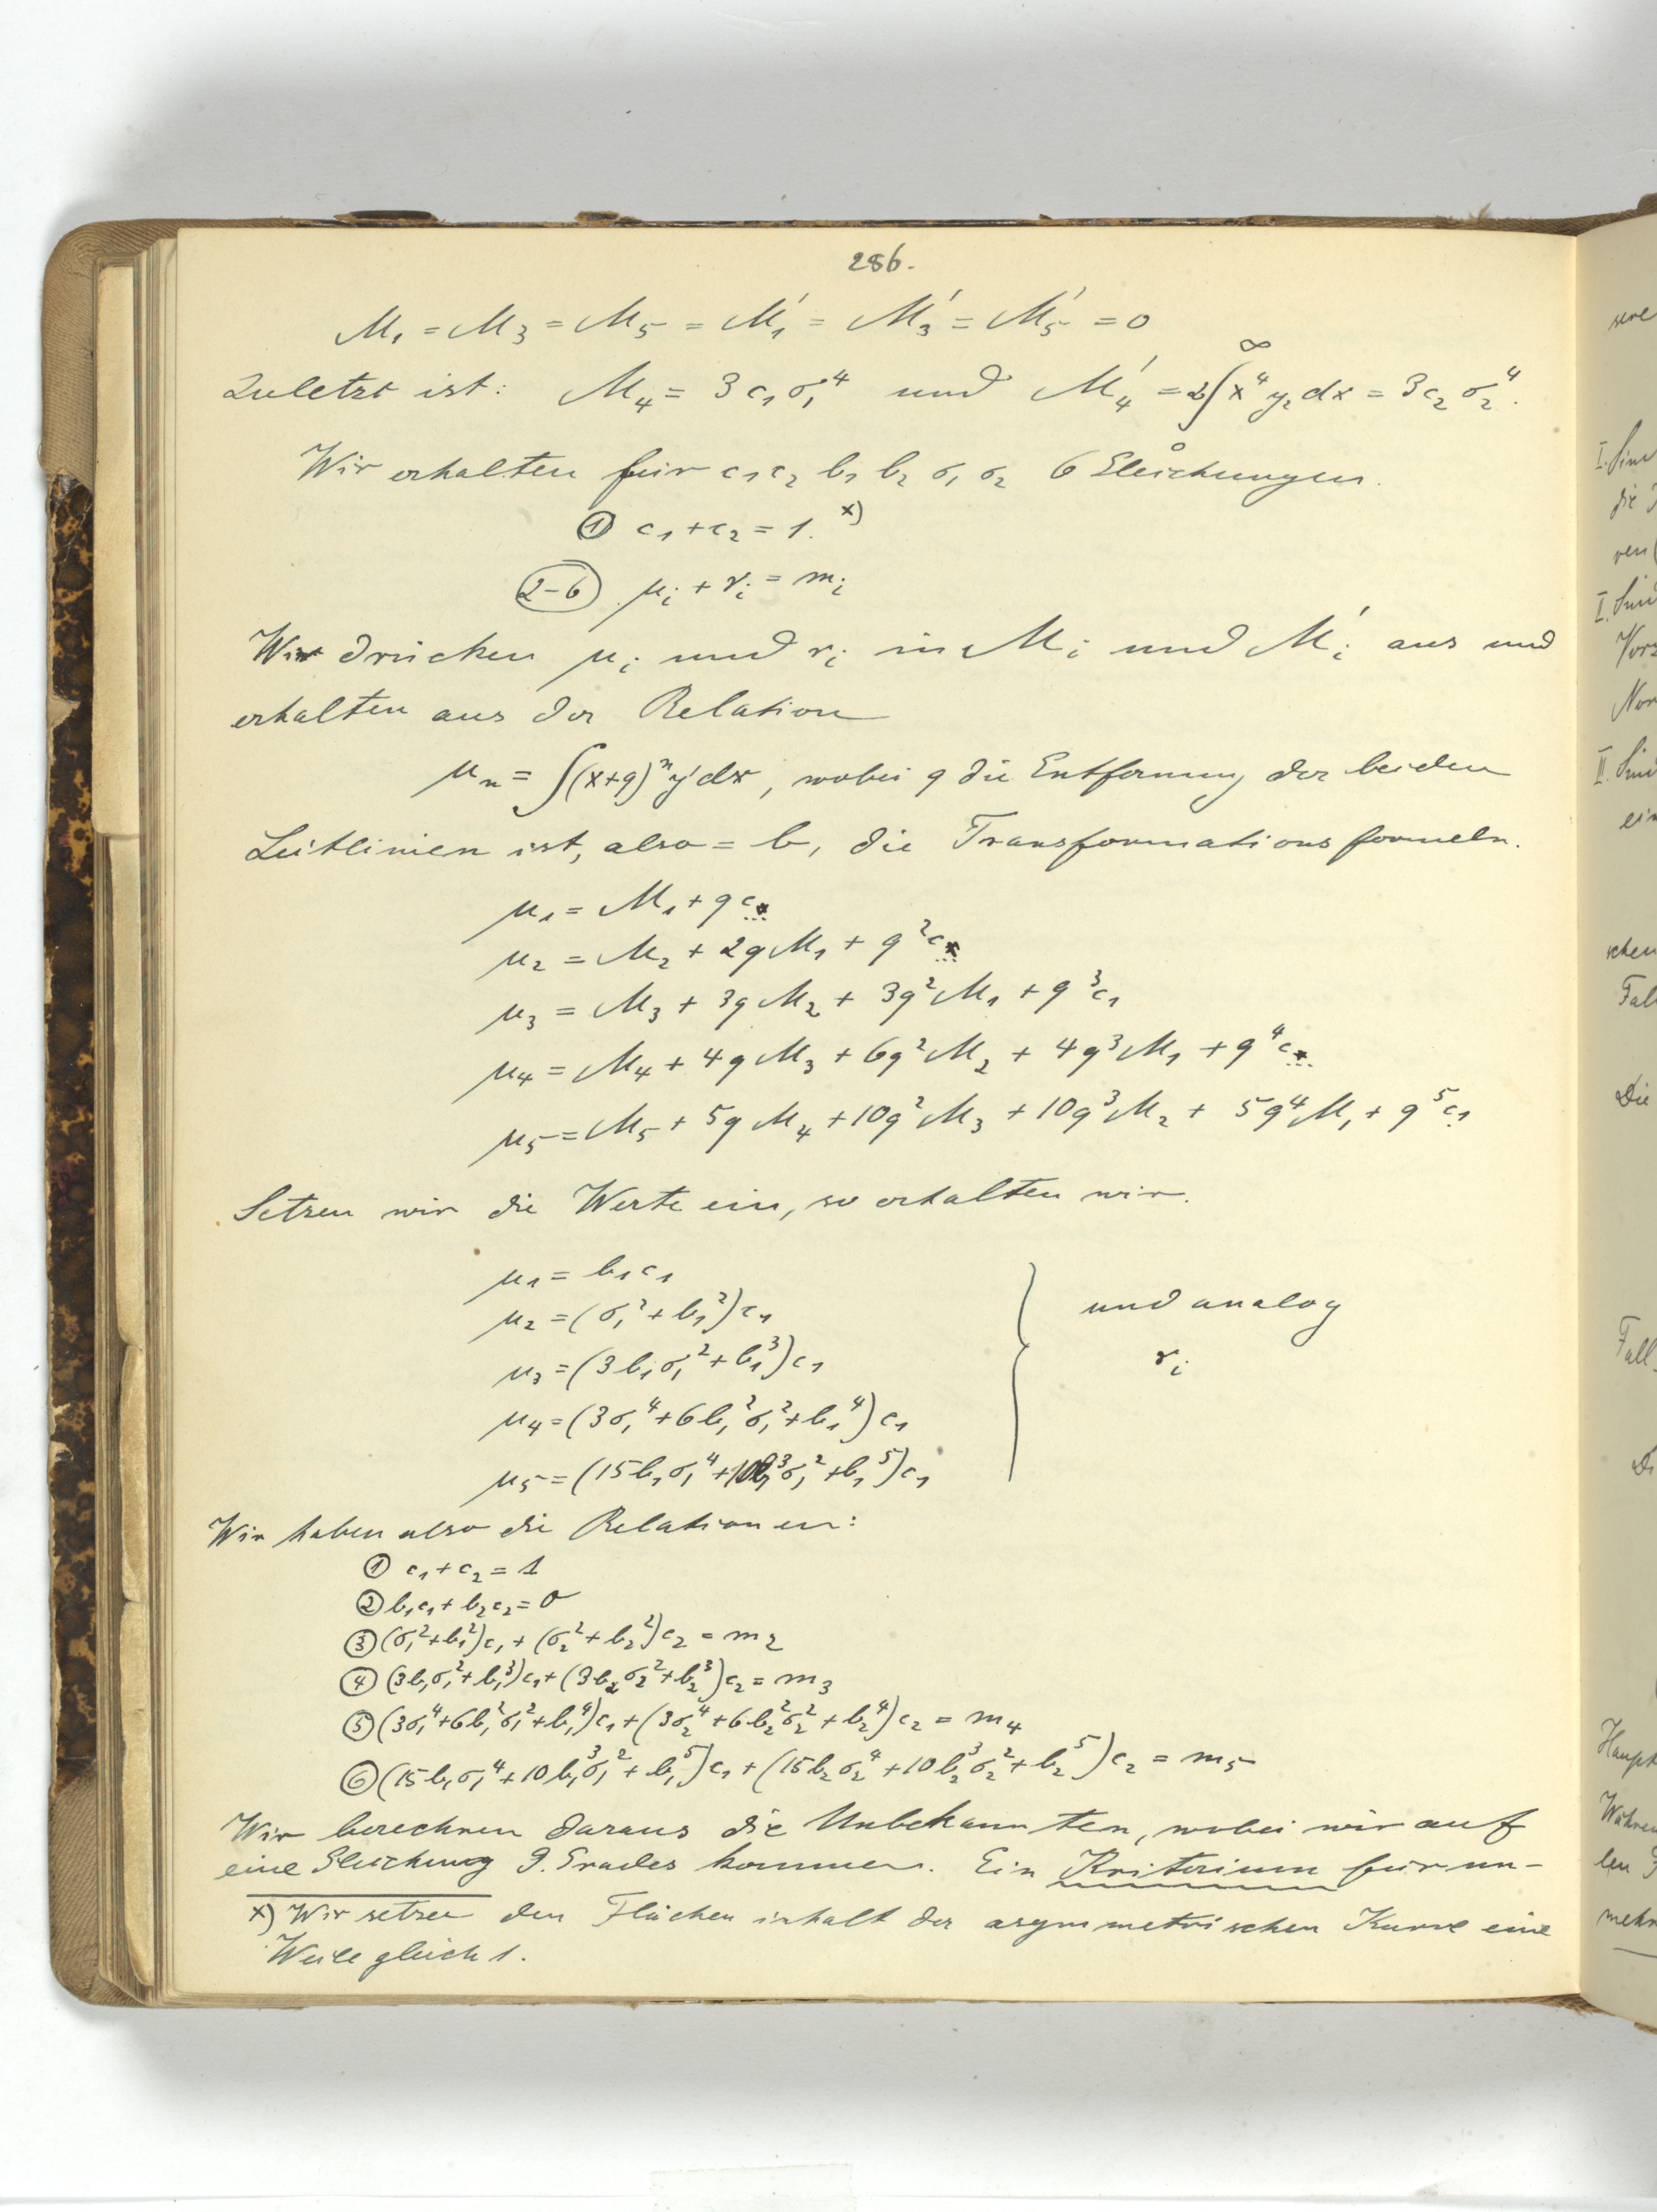 286.
M₁ = M₃ = M₅ = M₁' = M₃' = M₅' = 0
Zuletzt ist: M₄ = 3c₁σ₁⁴ und M₄' = 2∫₀^∞ x⁴y₂dx = 3c₂σ₂⁴.
Wir erhalten für c₁c₂ b₁ b₂ σ₁ σ₂ 6 Gleichungen.
① c₁+c₂ = 1. x)
(2–6) μᵢ + νᵢ = mᵢ
Wir drücken μᵢ und νᵢ in Mᵢ und Mᵢ' aus und
erhalten aus der Relation
μₙ = ∫(x+q)ⁿy'dx, wobei q die Entfernung der beiden
Leitlinien ist, also = b, die Transformationsformeln.
μ₁ = M₁ + qc₁
μ₂ = M₂ + 2qM₁ + q²c₁
μ₃ = M₃ + 3qM₂ + 3q²M₁ + q³c₁
μ₄ = M₄ + 4qM₃ + 6q²M₂ + 4q³M₁ + q⁴c₁
μ₅ = M₅ + 5qM₄ + 10q²M₃ + 10q³M₂ + 5q⁴M₁ + q⁵c₁
Setzen wir die Werte ein, so erhalten wir.
μ₁ = b₁c₁
μ₂ = (σ₁² + b₁²)c₁
μ₃ = (3b₁σ₁² + b₁³)c₁
μ₄ = (3σ₁⁴ + 6b₁²σ₁² + b₁⁴)c₁
μ₅ = (15b₁σ₁⁴ + 10b₁³σ₁² + b₁⁵)c₁
und analog
νᵢ
Wir haben also die Relationen:
① c₁ + c₂ = 1
② b₁c₁ + b₂c₂ = 0
③ (σ₁²+b₁²)c₁ + (σ₂²+b₂²)c₂ = m₂
④ (3b₁σ₁²+b₁³)c₁ + (3b₂σ₂²+b₂³)c₂ = m₃
⑤ (3σ₁⁴+6b₁²σ₁²+b₁⁴)c₁ + (3σ₂⁴+6b₂²σ₂²+b₂⁴)c₂ = m₄
⑥ (15b₁σ₁⁴+10b₁³σ₁²+b₁⁵)c₁ + (15b₂σ₂⁴+10b₂³σ₂²+b₂⁵)c₂ = m₅
Wir berechnen daraus die Unbekannten, wobei wir auf
eine Gleichung 9. Grades kommen. Ein Kriterium für un-
x) Wir setzen den Flächeninhalt der asymmetrischen Kurve eine
Weile gleich 1.